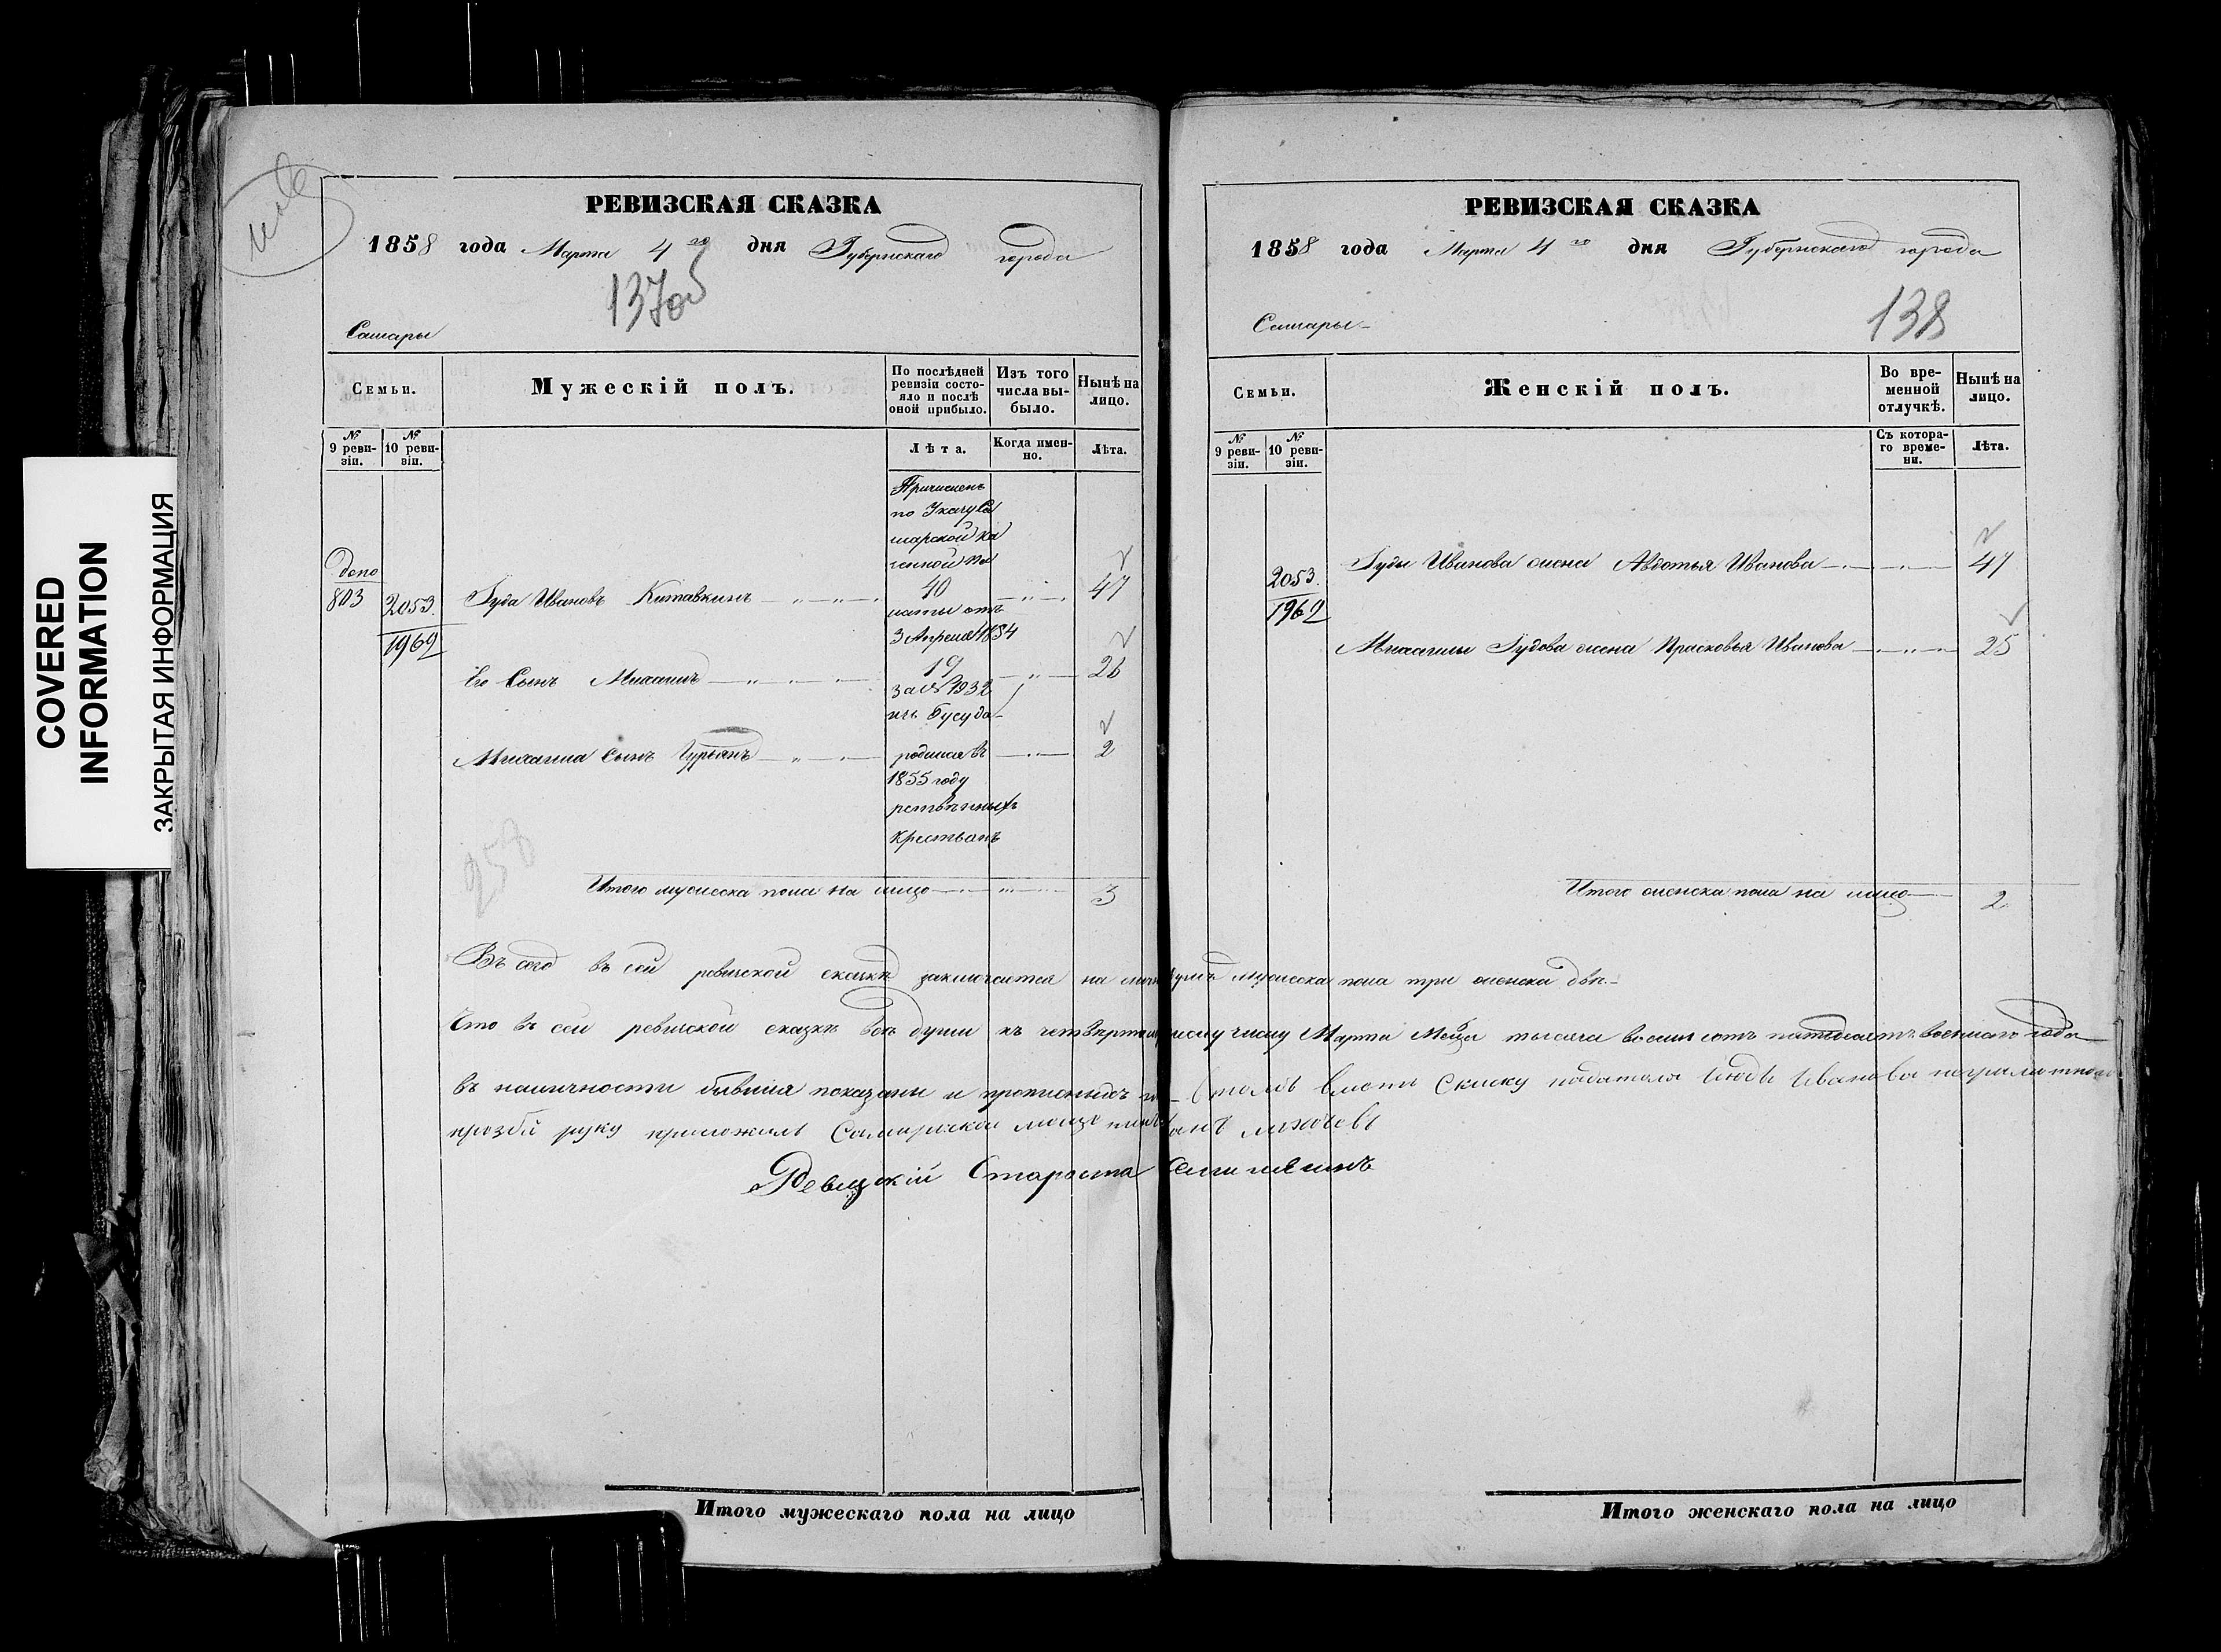 COVERED
INFORMATION
ЗАКРЫТАЯ ИНФОРМАЦИЯ
РЕВИЗСКАЯ СКАЗКА
1858 года Марта 4го дня Губернскаго города
137об
Самары
Семьи.
Мужескій полъ.
По послѣдней ревизіи состо-
яло и послѣ
оной прибыло.
Изъ того
числа вы-
было.
Нынѣ на
лицо.
№
9 реви-
зіи.
№
10 реви-
зіи.
Лѣта.
Когда имен-
но.
Лѣта.
Причисленъ
по Указу Са
марской Ка
зенной Па
допо
803
2053.
1962
Іуда Ивановъ Китавкинъ 40 47
латы отъ
3 Апреля 1854
Его Сынъ Михаилъ 19 26
за № 1932
изъ Государ
Михаила Сынъ Гурьянъ родился въ 2
1855 году
рственныхъ
Крестьянъ
958
Итого мужеска пола на лицо 3
РЕВИЗСКАЯ СКАЗКА
1858 года Марта 4го дня Губернскаго города
138
Самары
Семьи.
Женскій полъ.
Во вре-
менной
отлучкѣ.
Нынѣ на
лицо.
№
9 реви-
зіи.
№
10 реви-
зіи.
Съ котора-
го време-
ни.
Лѣта.
2053.
1962
Іуды Иванова жена Авдотья Иванова 47
Михаилы Іудова жена Прасковья Иванова 25
Итого женска пола на лицо 2
Въ сего въ сей ревизской сказкѣ заключается на лицо душъ мужеска пола три женска двѣ.
Что въ сей ревизской сказкѣ всѣ души къ четвертому числу Марта Мѣсяца тысяча восемь сотъ пятьдесятъ восьмаго года
въ наличности бывшія показаны и прописныхъ Иванова
прозбѣ руку приложилъ Самарской
Ревизскій Староста
Итого мужескаго пола на лицо
Итого женскаго пола на лицо